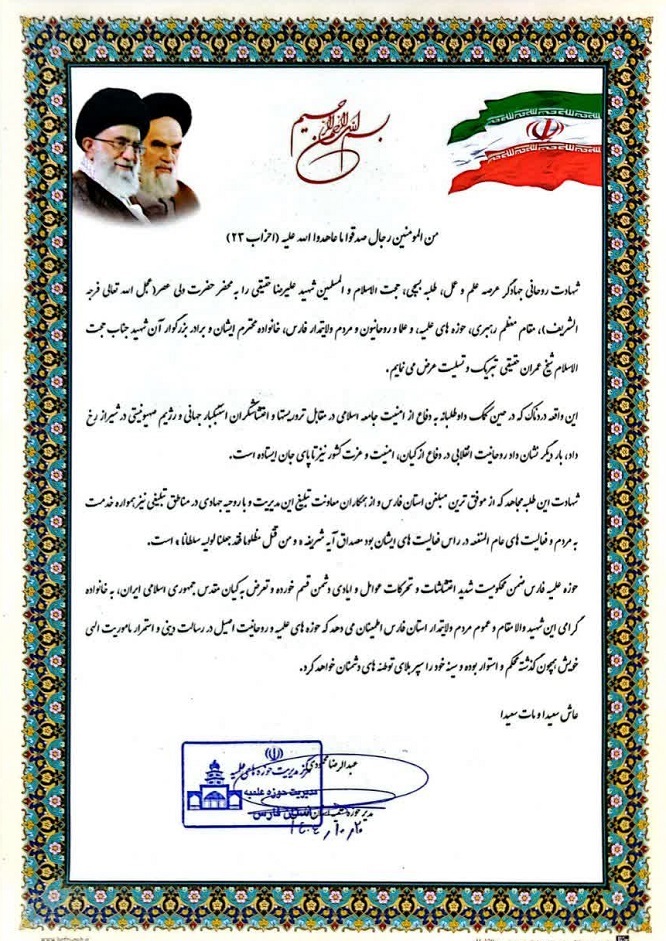 بسم الله الرحمن الرحیم
من المومنین رجال صدقوا ما عاهدوا الله علیه (احزاب ۲۳)
شهادت روحانی جهادگر عرصه علم و عمل، طلبه بسیجی، حجت الاسلام و المسلمین شهید علیرضا حقیقی را به محضر حضرت ولی عصر(عجل الله تعالی فرجه
الشریف)، مقام معظم رهبری، حوزه های علمیه، و علما و روحانیون و مردم ولایتمدار فارس، خانواده محترم ایشان و برادر بزرگوار آن شهید جناب حجت
الاسلام شیخ عمران حقیقی تبریک و تسلیت عرض می نمایم.
این واقعه دردناک که در حین کمک داوطلبانه به دفاع از امنیت جامعه اسلامی در مقابل تروریستها و اغتشاشگران استکبار جهانی و رژیم صهیونیستی در شیراز رخ
داد، بار دیگر نشان داد روحانیت انقلابی در دفاع از کیان، امنیت و عزت کشور نیز تا پای جان ایستاده است.
شهادت این طلبه مجاهد که از موفق ترین مبلغین استان فارس و از همکاران معاونت تبلیغ این مدیریت و با روحیه جهادی در مناطق تبلیغی نیز همواره خدمت
به مردم و فعالیت های عام المنفعه در راس فعالیت های ایشان بود مصداق آیه شریفه « و من قتل مظلوما فقد جعلنا لولیه سلطانا» است.
حوزه علمیه فارس ضمن محکومیت شدید اغتشاشات و تحرکات عوامل و ایادی دشمن قسم خورده و تعرض به کیان مقدس جمهوری اسلامی ایران، به خانواده
گرامی این شهید والامقام و عموم مردم ولایتمدار استان فارس اطمینان می دهد که حوزه های علمیه و روحانیت اصیل در رسالت دینی و استمرار ماموریت الهی
خویش همچون گذشته محکم و استوار بوده و سینه خود را سپر بلای توطئه های دشمنان خواهد کرد.
عاش سعیدا و مات سعیدا
عبدالرضا محمودی
مرکز مدیریت حوزه های علمیه
مدیریت حوزه علمیه
استان فارس
مدیر حوزه علمیه استان فارس
۱۴۰۴/۱۰/۲۰